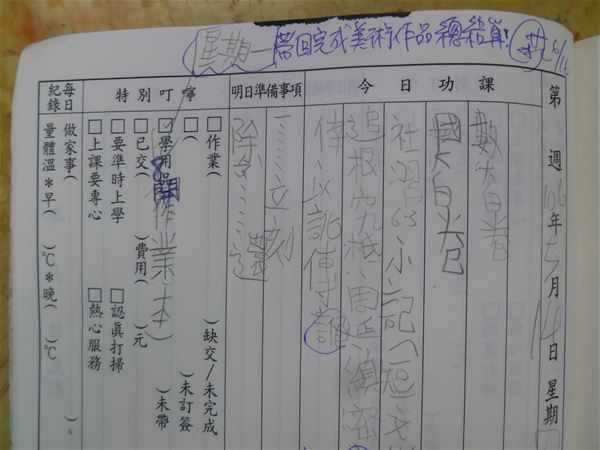 星期一帶回完成美術作品總結單! 6/16
第 週 106年 月 14日 星期
今日功課
數大白卷
國大白卷
社習63、小記(短文
追根究柢、周延、縝密
傳、以訛傳訛
明日準備事項
立刻
除忘……還
特別叮嚀
□作業( )缺交/未完成
( )未訂簽
□學用品(作業本)未帶
□已交( )費用( )元
□要準時上學 □認真打掃
□上課要專心 □熱心服務
每日紀錄
做家事( )。
量體溫*早( )℃*晚( )℃